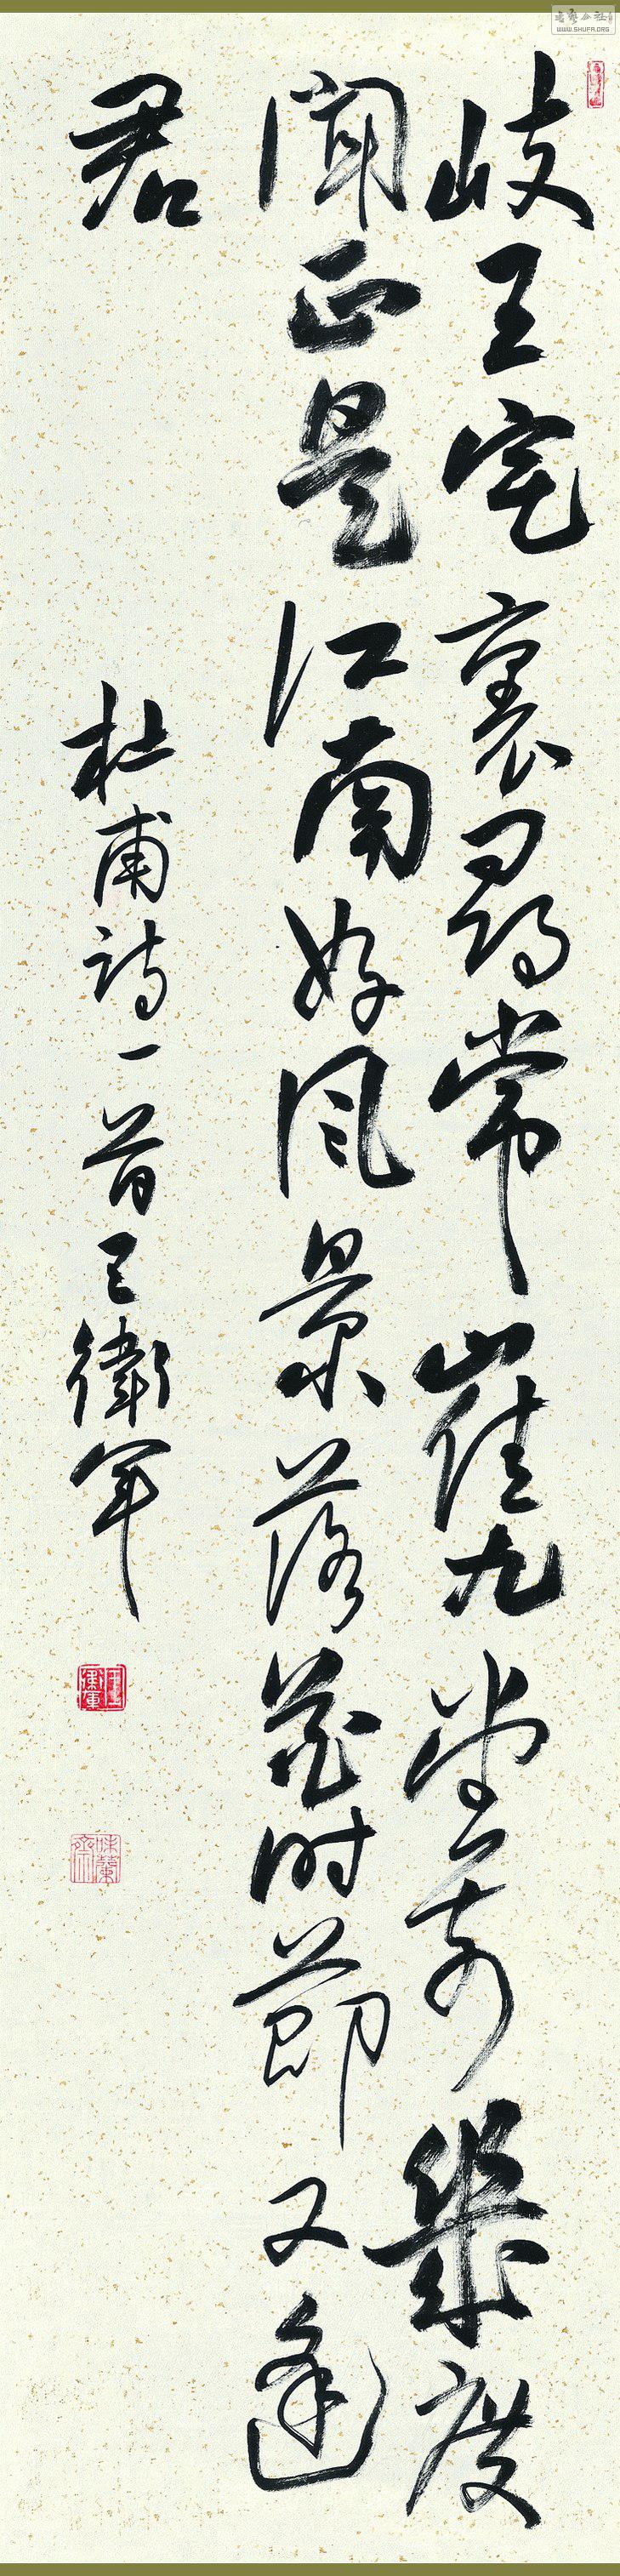 岐王宅裏尋常崔九堂前幾度
聞正是江南好風景落花時節又逢
君
杜甫詩一首王衛軍
王衛軍
WWW.SHUFA.ORG